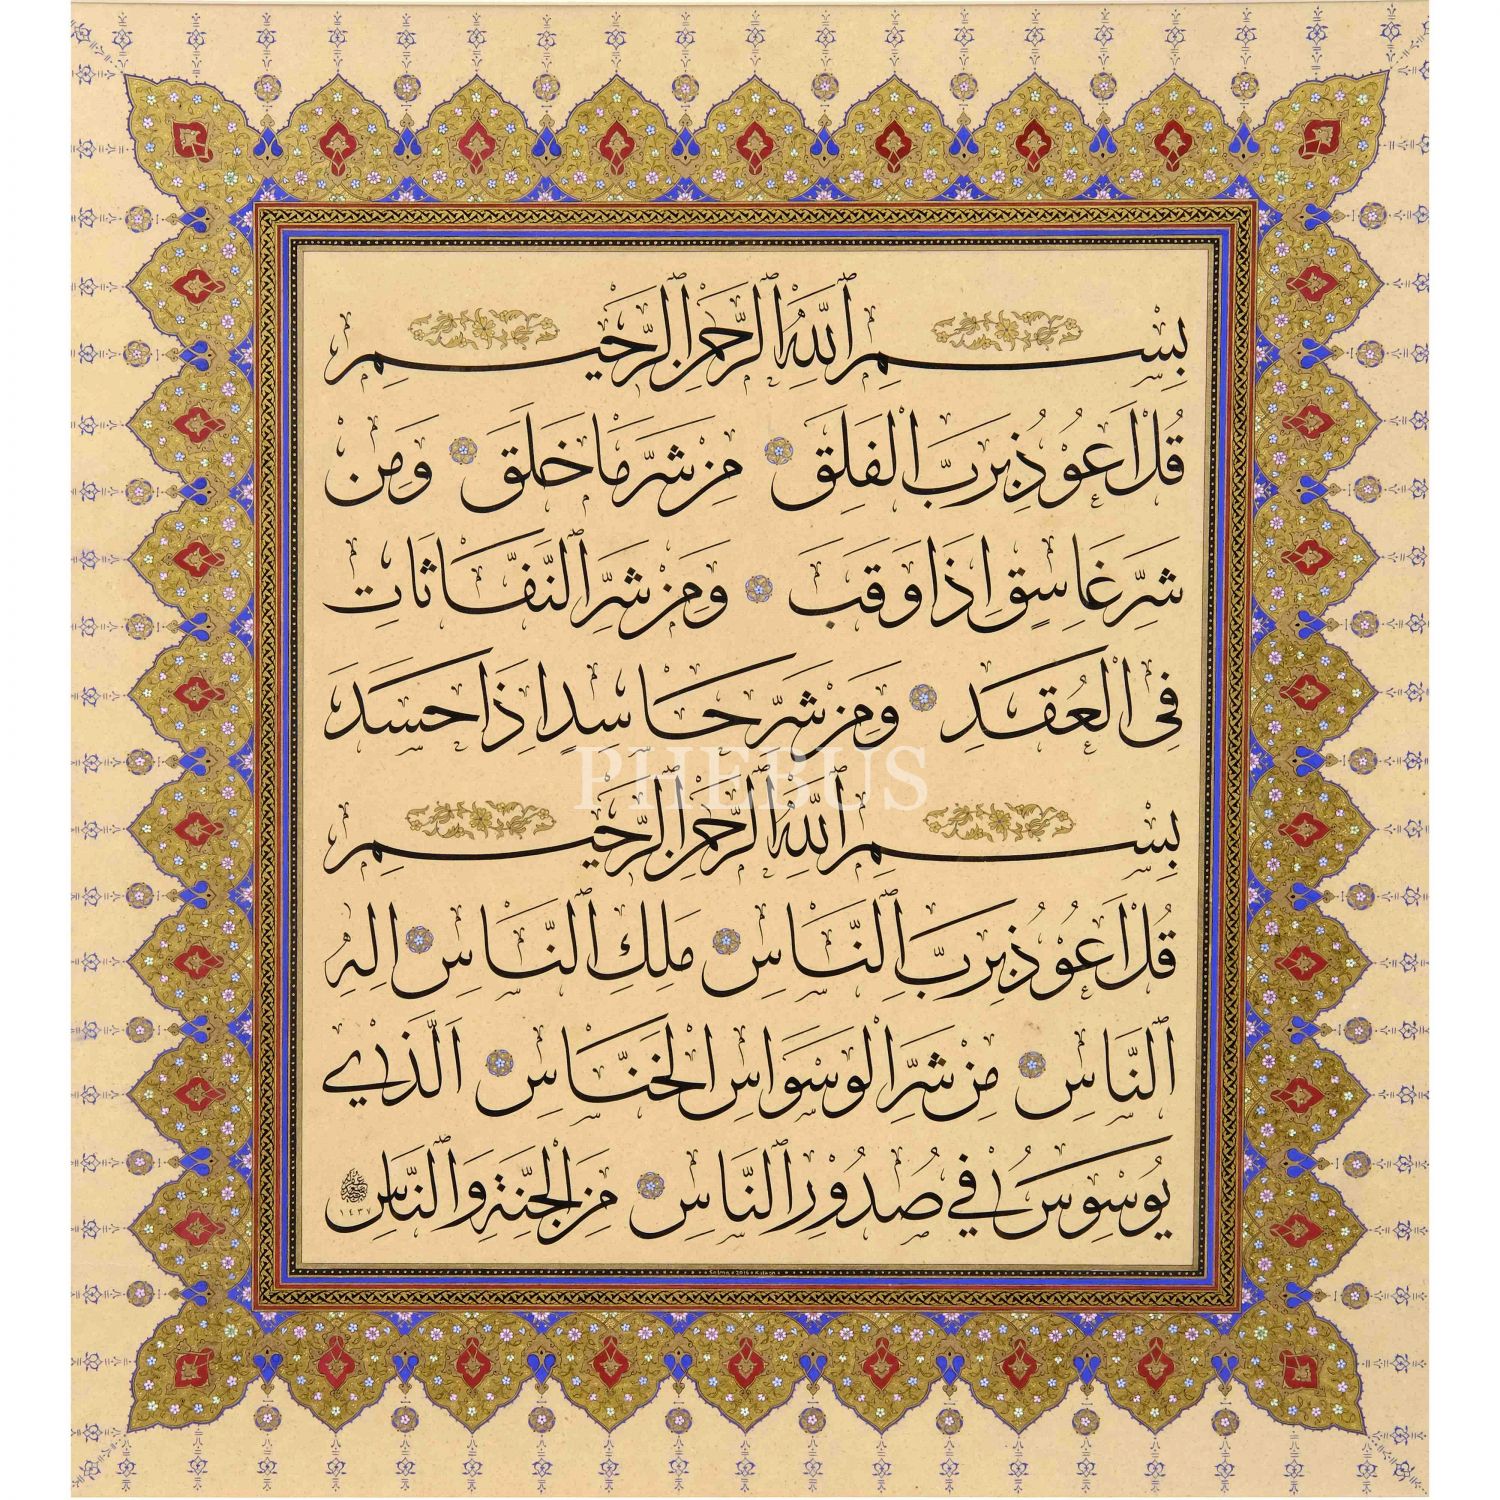 بِسْمِ اللّٰهِ الرَّحْمٰنِ الرَّحِيمِ
قُلْ اَعُوذُ بِرَبِّ الْفَلَقِ مِنْ شَرِّ مَا خَلَقَ وَمِنْ
شَرِّ غَاسِقٍ اِذَا وَقَبَ وَمِنْ شَرِّ النَّفَّاثَاتِ
فِي الْعُقَدِ وَمِنْ شَرِّ حَاسِدٍ اِذَا حَسَدَ
PHEBUS
بِسْمِ اللّٰهِ الرَّحْمٰنِ الرَّحِيمِ
قُلْ اَعُوذُ بِرَبِّ النَّاسِ مَلِكِ النَّاسِ اِلٰهِ
النَّاسِ مِنْ شَرِّ الْوَسْوَاسِ الْخَنَّاسِ اَلَّذِي
يُوَسْوِسُ فِي صُدُورِ النَّاسِ مِنَ الْجِنَّةِ وَالنَّاسِ
١٤٣٧